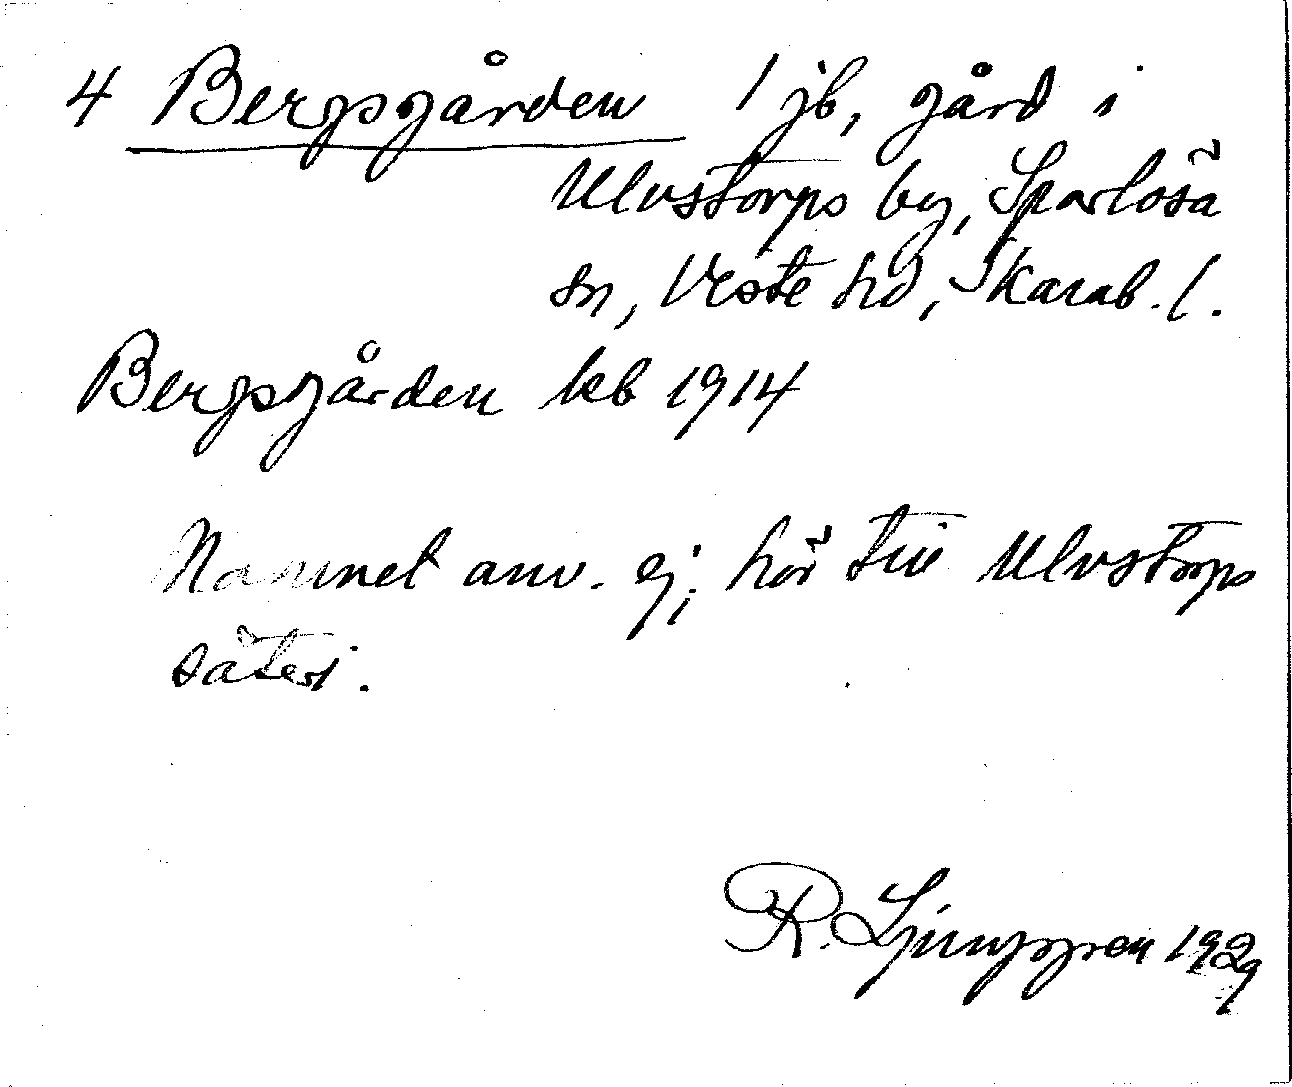 4 Bergsgården 1 jb, gård i
Ulvstorps by, Sparlösa
sn, Viste hd, Skarab. l.
Bergsgården kb 1914
Namnet anv. ej; hör till Ulvstorps
säteri.
R. Ljunggren 1929